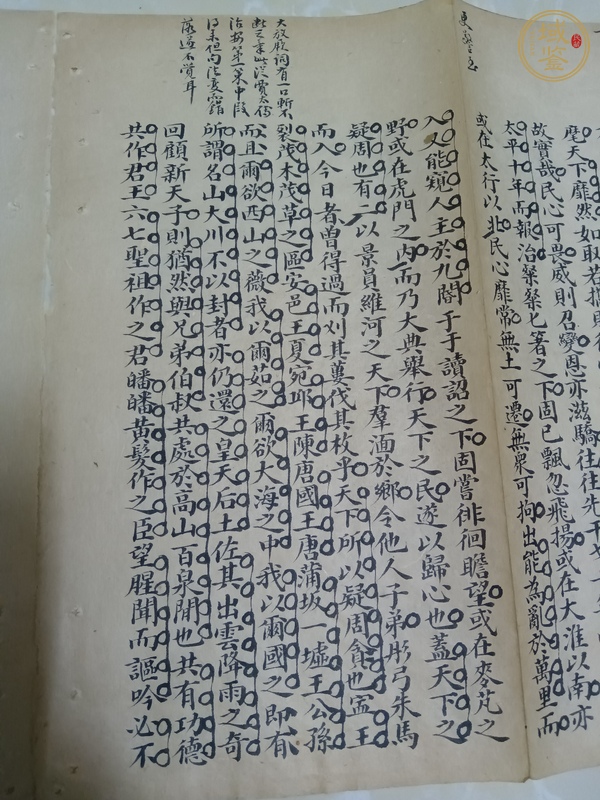 麾天下靡然如取若指則
故實哉民心可畏威則召變恩亦滋驕往往先干
太平十年而報治粲粲匕箸之下固已飄忽飛揚或在大淮以南亦
或在太行以北民心靡常無土可遷無衆可拘出能為亂於萬里而
入又能窺人主於九閽于于讀詔之下固嘗徘徊瞻望或在麥芃之
野或在虎門之内而乃大典舉行天下之民遂以歸心也蓋天下之
疑周也有二以景員維河之天下羣湎於鄉令他人子弟彤弓朱馬
而入今日者曾得過而刈其蔞伐其枚乎天下所以疑周貪也盍王
裂茂木茂草之區安邑王夏宛邱王陳唐國王唐蒲坂一墟王公孫
而且爾欲西山之薇我以爾茹之爾欲大海之中我以爾國之即有
所謂名山大川不以封者亦仍還之皇天后土佐其出雲降雨之奇
回顧新天子則猶然與兄弟伯叔共處於高山百泉間也共有功德
共作君王六七聖祖作之君皤皤黃髮作之臣望腥聞而謳吟必不
大放厥詞有一口斬不
治安第一策中段
落遂不覺耳